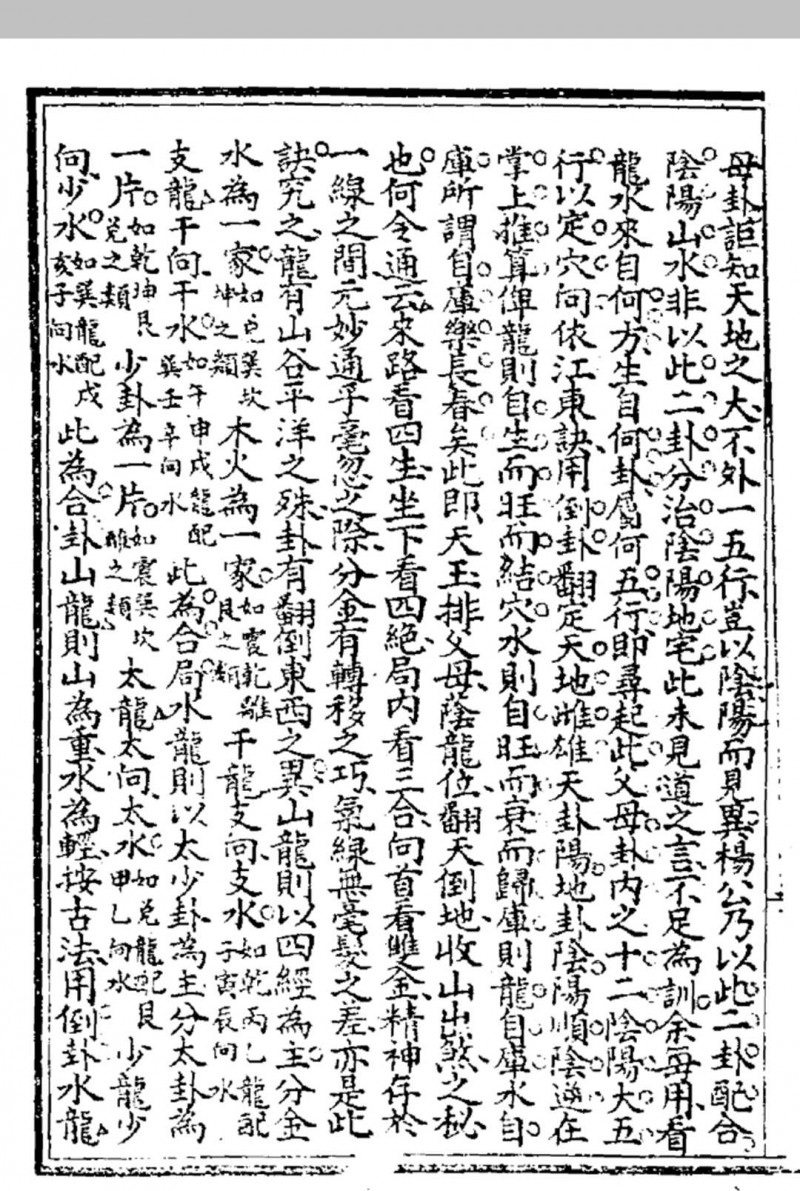 母卦詎知天地之大不外一五行豈以陰陽而見異楊公乃以此二卦配合
陰陽山水非以此二卦分治陰陽地宅此未見道之言不足為訓余每用看
龍水來自何方生自何卦屬何五行即尋起此父母卦内之十二陰陽大五
行以定穴向依江東訣用倒卦翻定天地雌雄天卦陽地卦陰陽順陰逆在
掌上推算俾龍則自生而旺而結穴水則自旺而衰而歸庫則龍自庫水自
庫所謂自庫樂長春矣此即天玉排父母蔭龍位翻天倒地收山出煞之秘
也何令通云來路看四生坐下看四絕局内看三合向首看雙金精神存於
一線之間元妙通乎毫忽之際分金有轉移之巧氣線無毫髮之差亦是此
訣究之龍有山谷平洋之殊卦有翻倒東西之異山龍則以四經為主分金
水為一家如兌巽坎坤之類木火為一家如震乾離艮之類干龍支向支水如乾丙乙龍配子寅辰向水
支龍干向干水如午申戌龍配巽壬辛向水此為合局水龍則以太少卦為主分太卦為
一片如乾坤艮兌之類少卦為一片如震巽坎離之類太龍太向太水如兌龍配艮甲乙向水少龍少
向少水如巽龍配戌亥子向水此為合卦山龍則山為重水為輕按古法用倒卦水龍